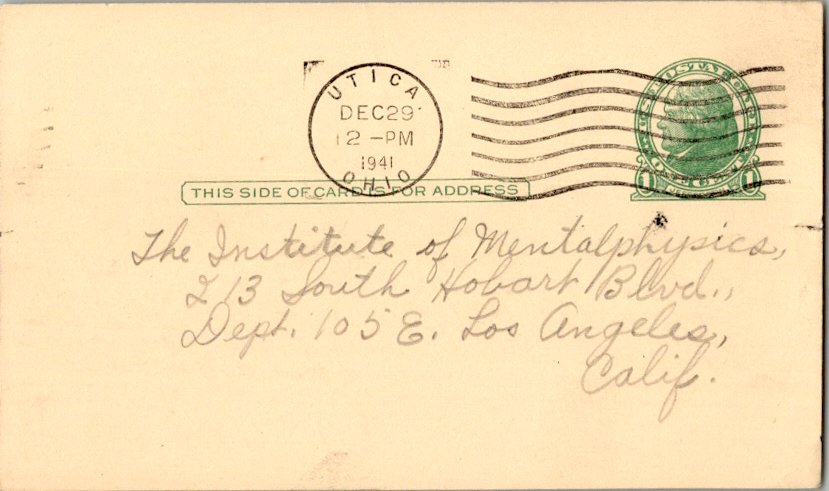 UTICA
DEC 29
12 -PM
1941
OHIO
U.S. POSTAL CARD
ONE CENT
1 1
THIS SIDE OF CARD IS FOR ADDRESS
The Institute of Mentalphysics,
213 South Hobart Blvd.,
Dept. 105 E. Los Angeles,
Calif.